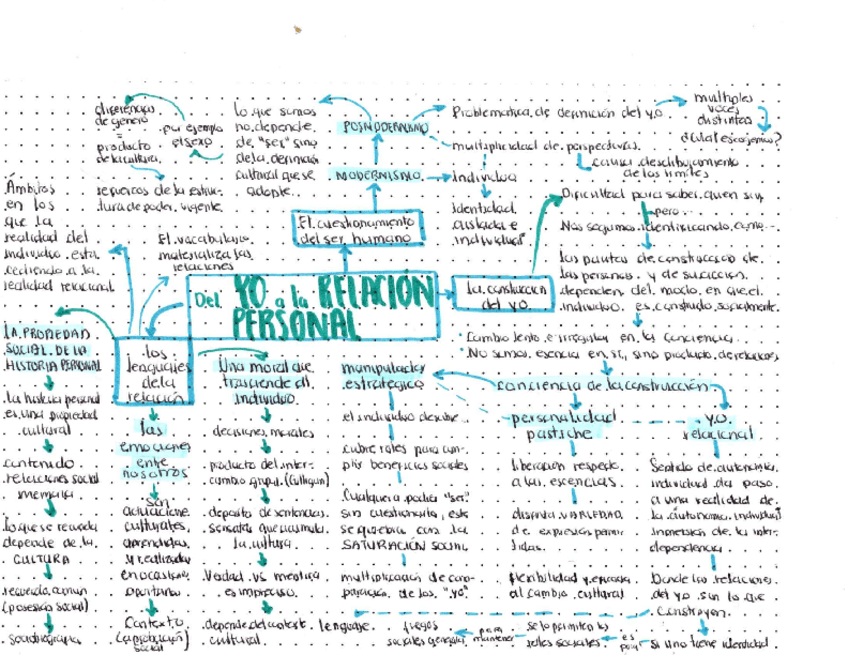 Del YO a la RELACIÓN
PERSONAL
El cuestionamiento
del ser humano
MODERNISMO
individuo
identidad
aislada e
POSMODERNISMO
Problemática de definición del yo
múltiples
voces
distintas
multiplicidad de perspectivas
causa desdibujamiento
de los límites
lo que somos
no depende
de "ser" sino
de la
cultural que se
adopte
por ejemplo
el sexo
diferencias
de género
=
producto
de la cultura
refuerzos de la estruc-
tura de poder vigente
La construcción
del yo
Dificultad para saber quien soy
pero
Nos seguimos identificando como
las pautas de construcción de
las personas y de
dependen del modo en que el
individuo es construido socialmente
· Cambio lento e irregular en la conciencia
· No somos esencia en sí, sino producto de relaciones
conciencia de la construcción
manipulador
estratégico
el individuo descubre
cubre roles para cum-
plir beneficios sociales
Cualquiera podía "ser"
sin cuestionarlo, esto
se quiebra con la
SATURACIÓN SOCIAL
multiplicación de com-
de los "yo"
personalidad
pastiche
liberación respecto
a las esencias
disfruta VARIEDAD
de expresión permi-
tidas
flexibilidad y
al cambio cultural
yo
relacional
Sentido de autonomía
individual da paso
a una realidad de
inmersión de la inter-
dependencia
Donde las relaciones
del yo son lo que
construyen
si uno tiene identidad
es
por
se lo permiten los
roles sociales
para
mantener
juegos
sociales generales
los
lenguajes
de la
relación
El vocabulario
materializa las
relaciones
Ámbitos
en los
que la
realidad del
individuo está
cediendo a la
realidad relacional
LA PROPIEDAD
SOCIAL DE LA
HISTORIA PERSONAL
la historia personal
es una propiedad
cultural
contenido
relaciones social
memoria
lo que se recuerda
depende de la
CULTURA
recuerdo común
(posesión social)
sociobiografía
las
emociones
entre
nosotros
son
actuaciones
culturales,
aprendidas
y realizadas
en ocasiones
oportunas
Contexto
(aprobación)
social
Una moral que
trasciende al
individuo
decisiones morales
producto del inter-
cambio grupal (Gilligan)
depósito de sentencias
sensatas que acumula
la cultura
Verdad vs mentira
es impreciso
depende del contexto
cultural
lenguaje